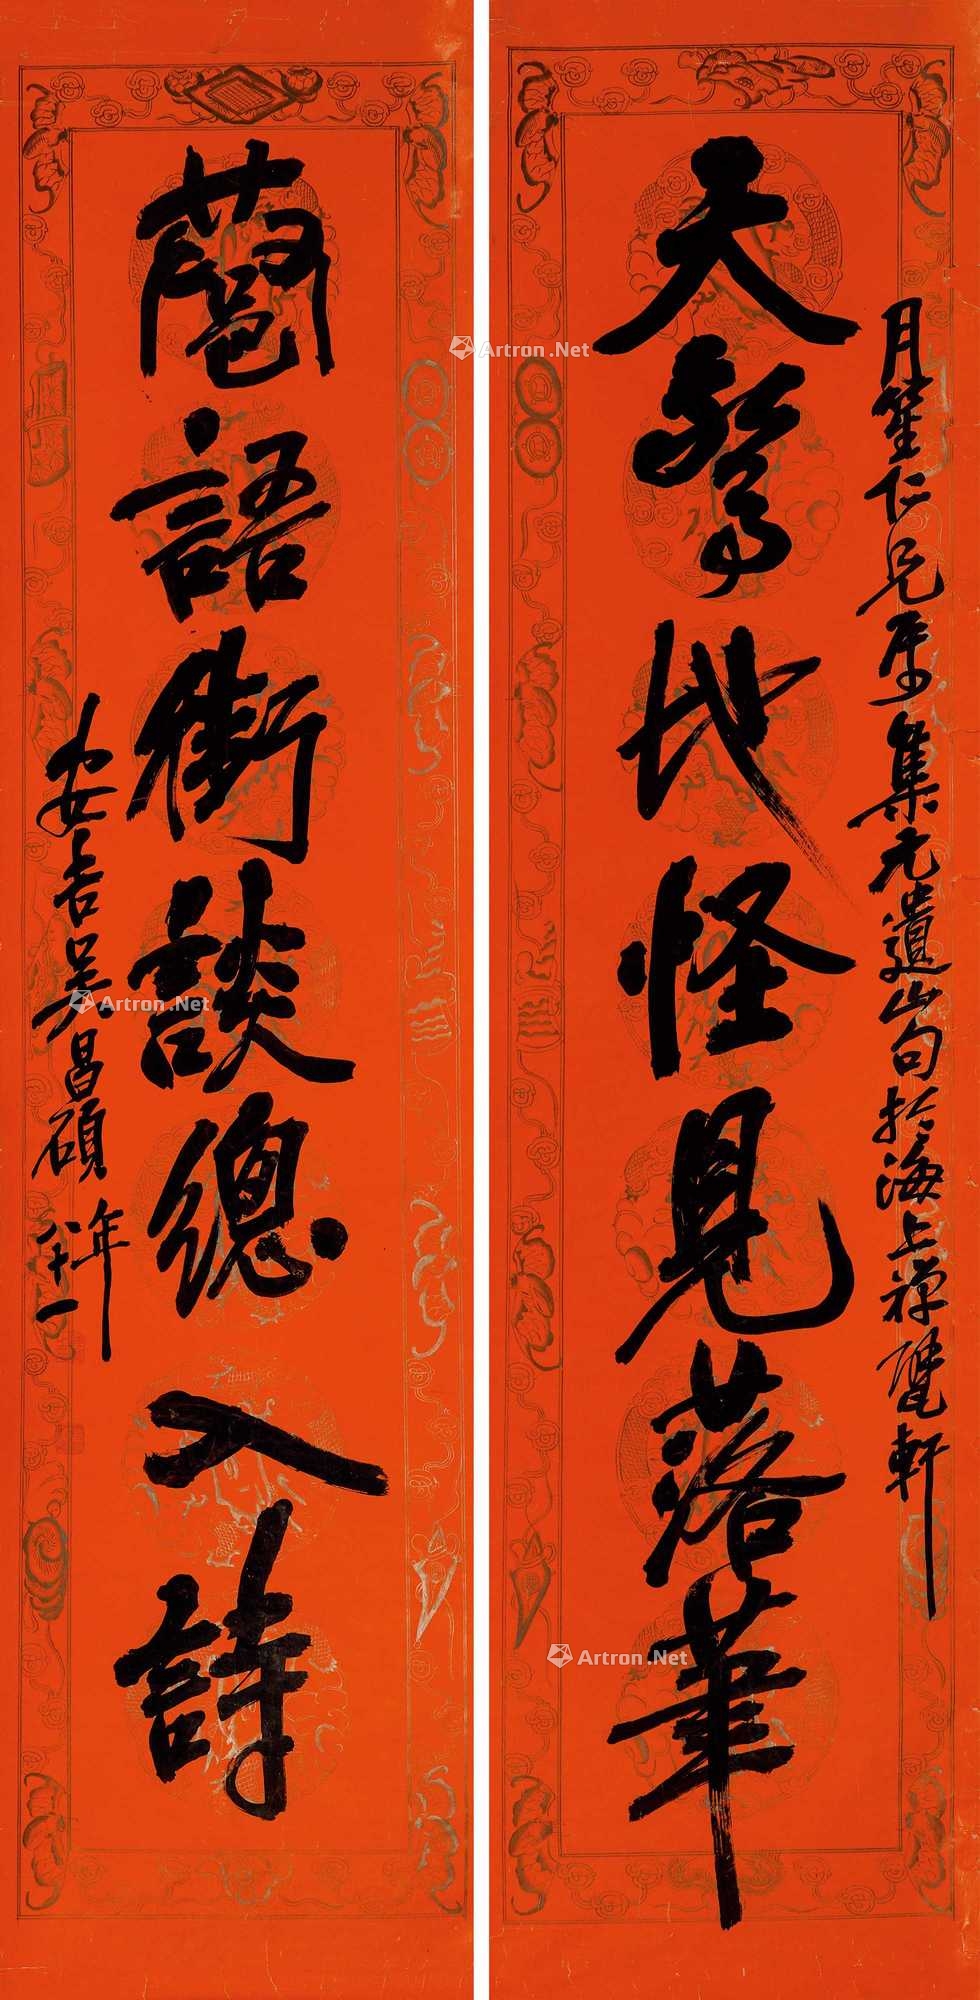 月笙仁兄屬集元遺山句於海上禪甓軒
天驚地怪見落筆
巷語街談總入詩
安吉吳昌碩年八十一
Artron.Net
Artron.Net
Artron.Net